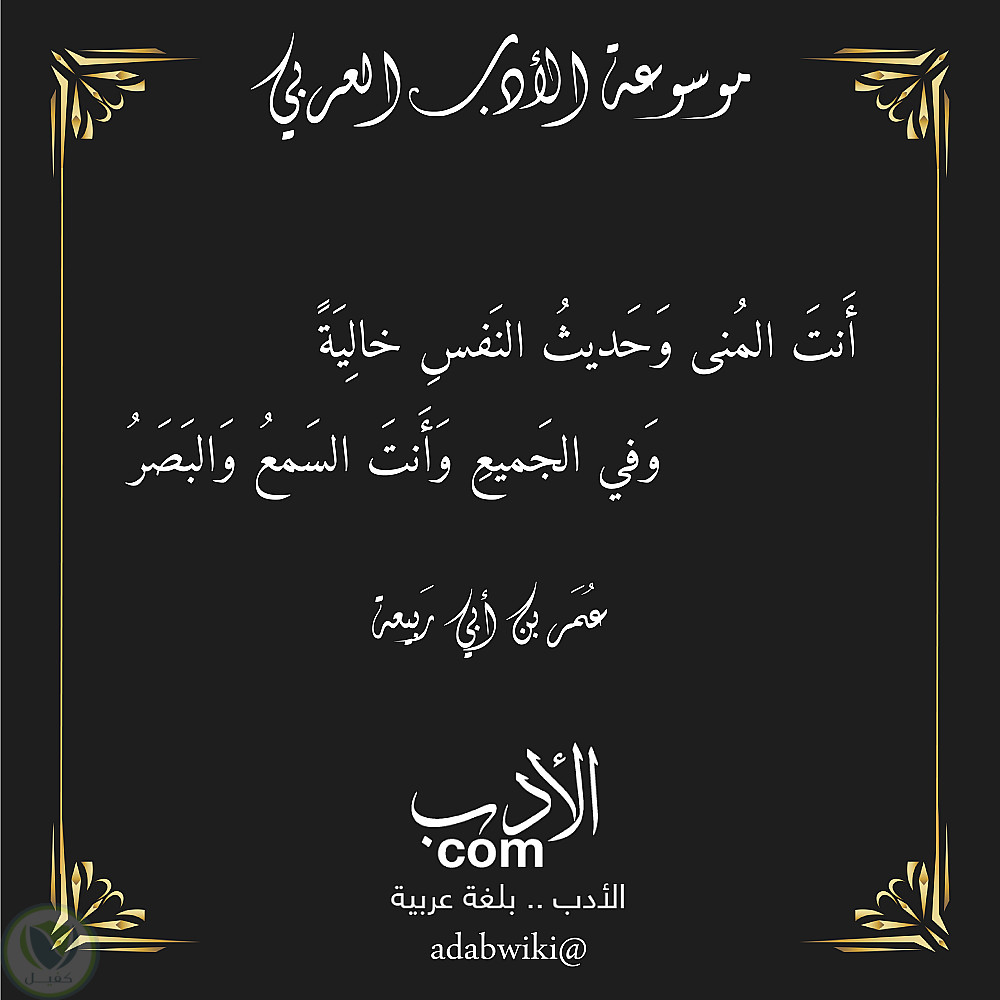 موسوعة الأدب العربي
أَنتَ المُنى وَحَديثُ النَفسِ خالِيَةً
وَفي الجَميعِ وَأَنتَ السَمعُ وَالبَصَرُ
عُمَر بن أبي رَبيعة
الأدب
com
الأدب .. بلغة عربية
adabwiki@
كفيل